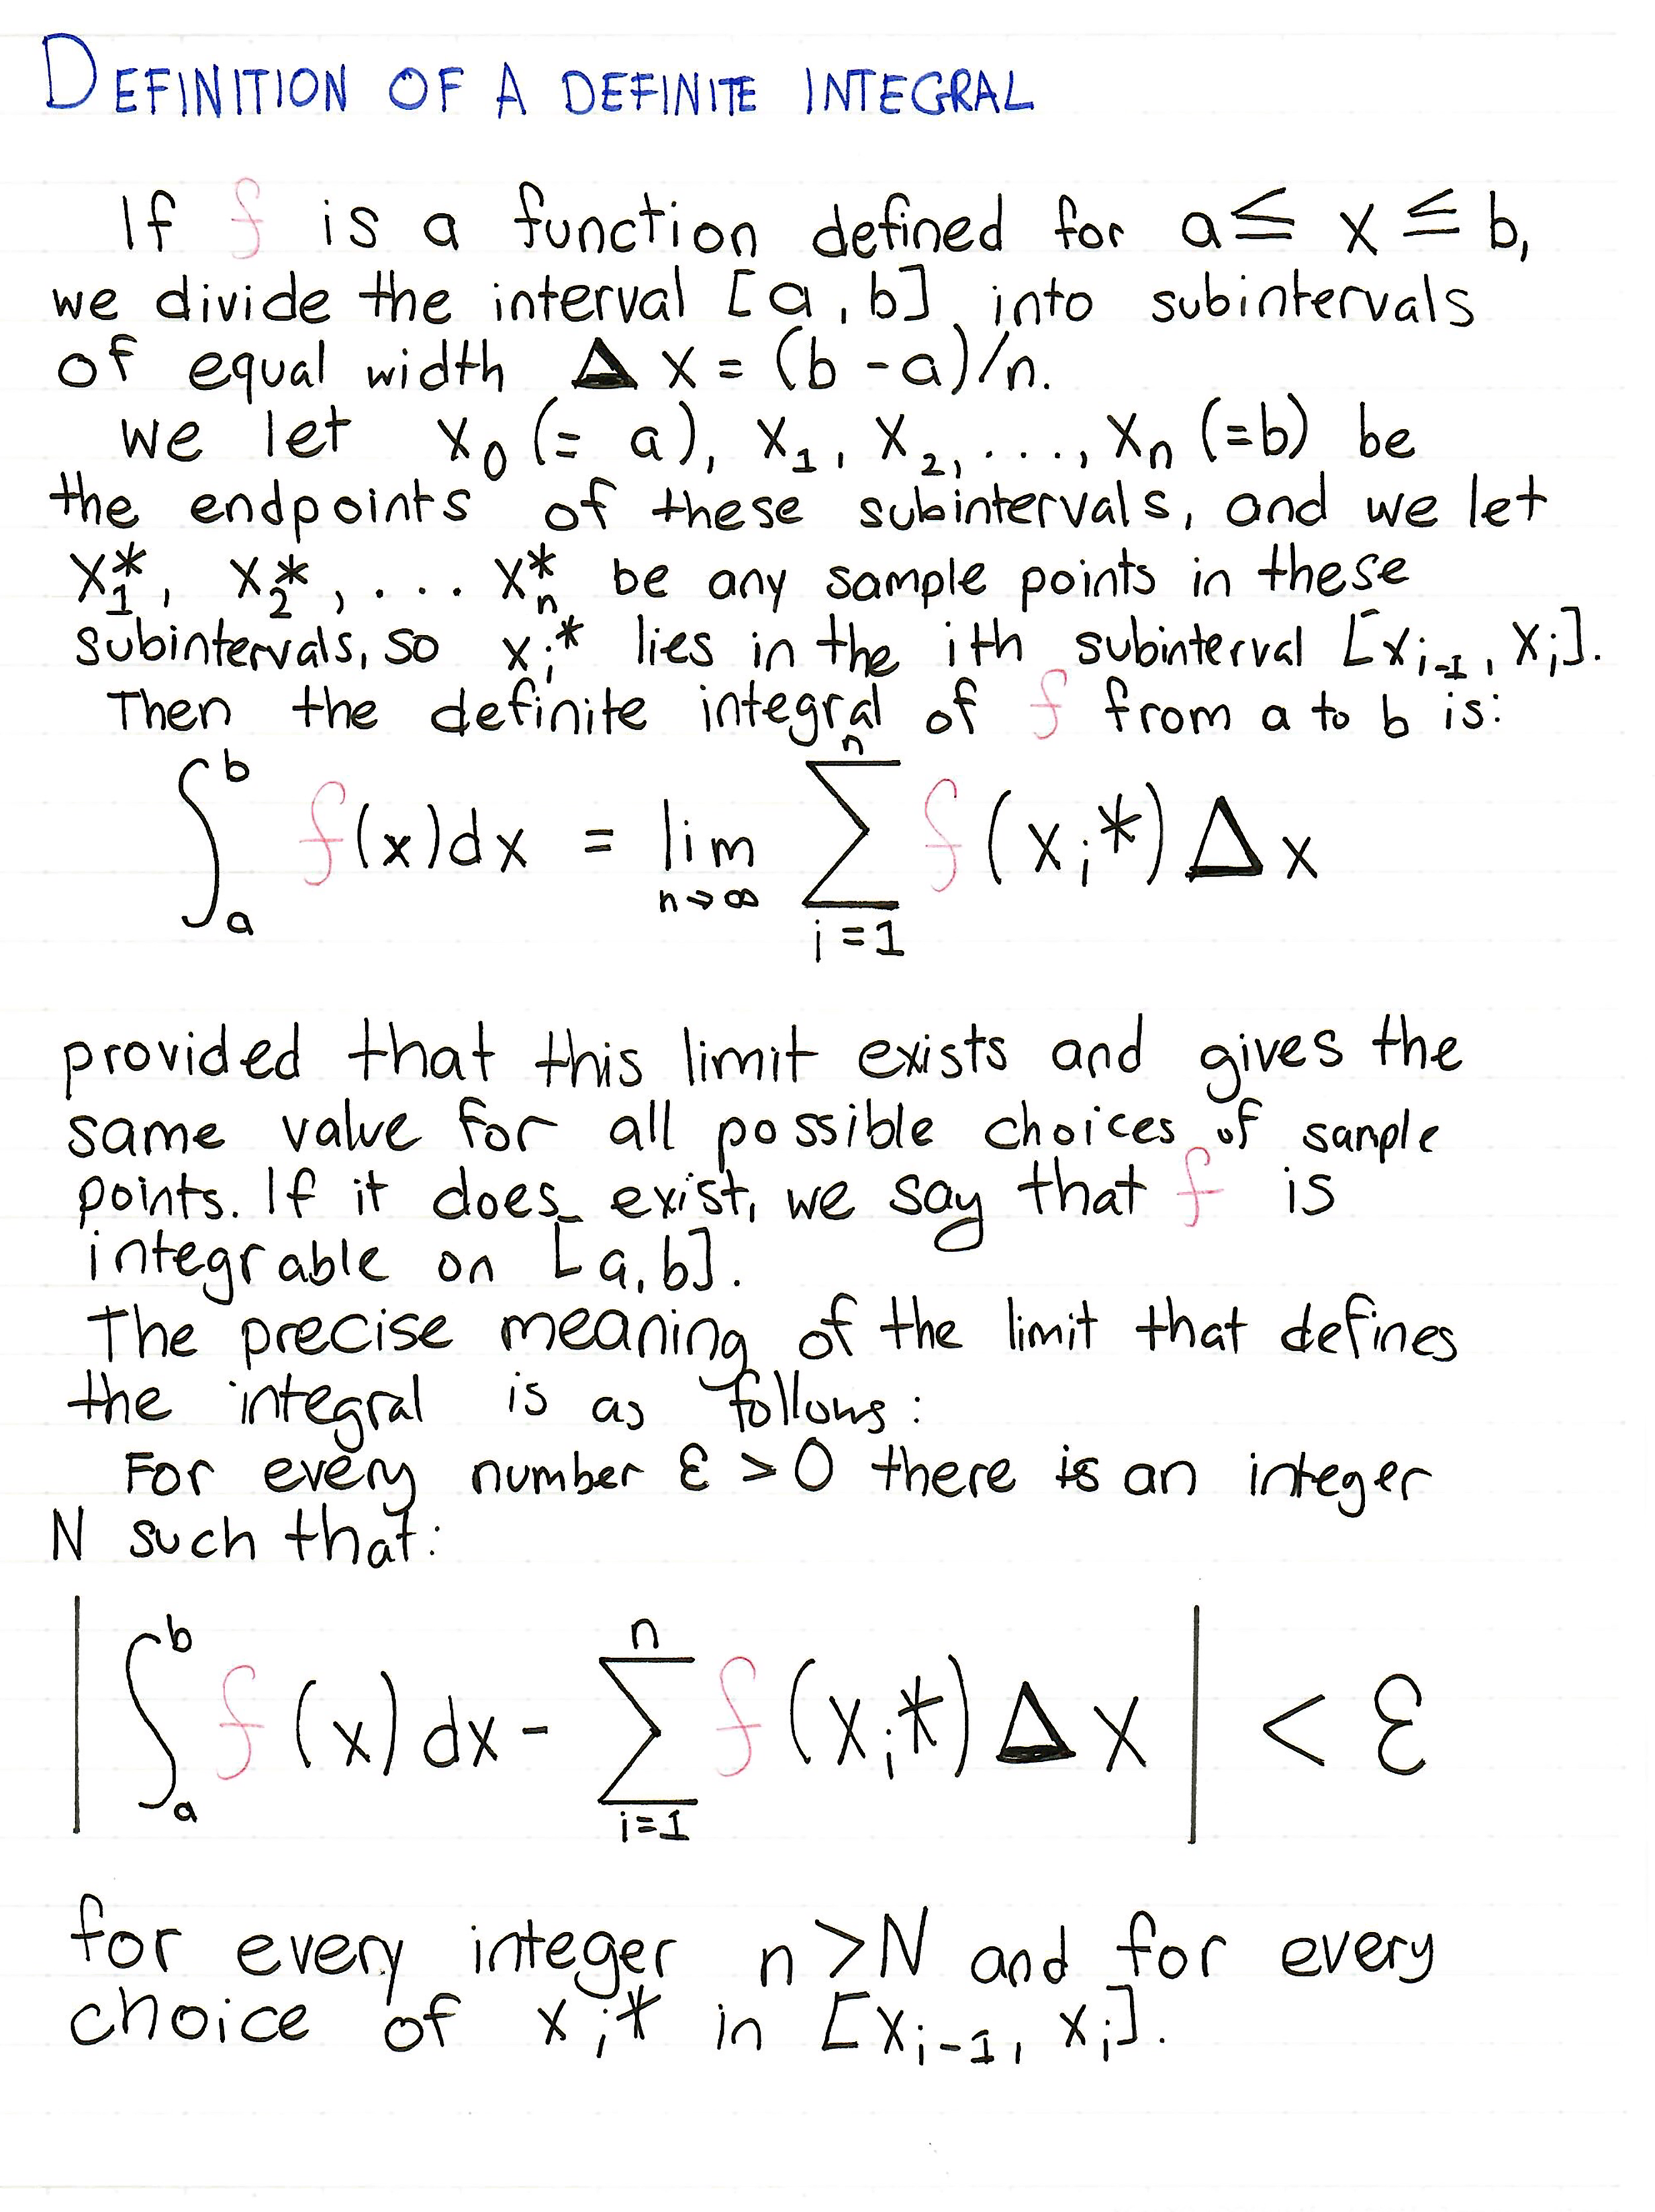 DEFINITION OF A DEFINITE INTEGRAL
If f is a function defined for a ≤ x ≤ b,
we divide the interval [a, b] into subintervals
of equal width Δx = (b - a)/n.
we let x₀ (= a), x₁, x₂, ..., xₙ (=b) be
the endpoints of these subintervals, and we let
x₁*, x₂*, ... xₙ* be any sample points in these
subintervals, so xᵢ* lies in the ith subinterval [xᵢ₋₁, xᵢ].
Then the definite integral of f from a to b is:
∫ₐᵇ f(x)dx = lim n→∞ ∑ i=1 n f(xᵢ*) Δx
provided that this limit exists and gives the
same value for all possible choices of sample
points. If it does exist, we say that f is
integrable on [a, b].
The precise meaning of the limit that defines
the integral is as follows:
For every number ε > 0 there is an integer
N such that:
| ∫ₐᵇ f(x)dx - ∑ i=1 n f(xᵢ*) Δx | < ε
for every integer n > N and for every
choice of xᵢ* in [xᵢ₋₁, xᵢ].